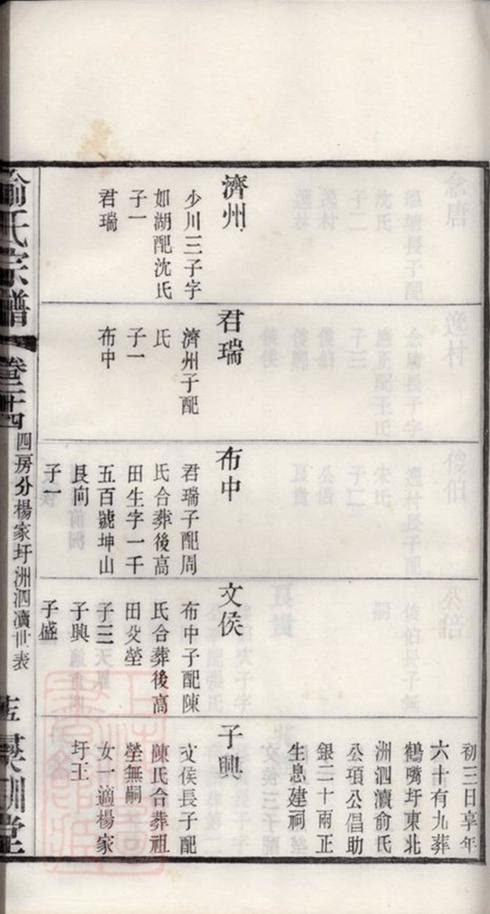 初三日享年
六十有九葬
鶴嘴圩東北
洲泗瀆俞氏
公項公倡助
銀三十兩正
生息建祠
濟州
少川三子字
如湖配沈氏
子一
君瑞
君瑞
濟州子配
氏
子一
布中
布中
君瑞子配周
氏合葬後高
田生字一千
五百號坤山
艮向
子一
文侯
布中子配陳
氏合葬後高
田父塋
子三
子興
子盛
子興
文侯長子配
陳氏合葬祖
塋無嗣
女一適楊家
圩王
俞氏宗譜
四房分楊家圩洲泗瀆世表